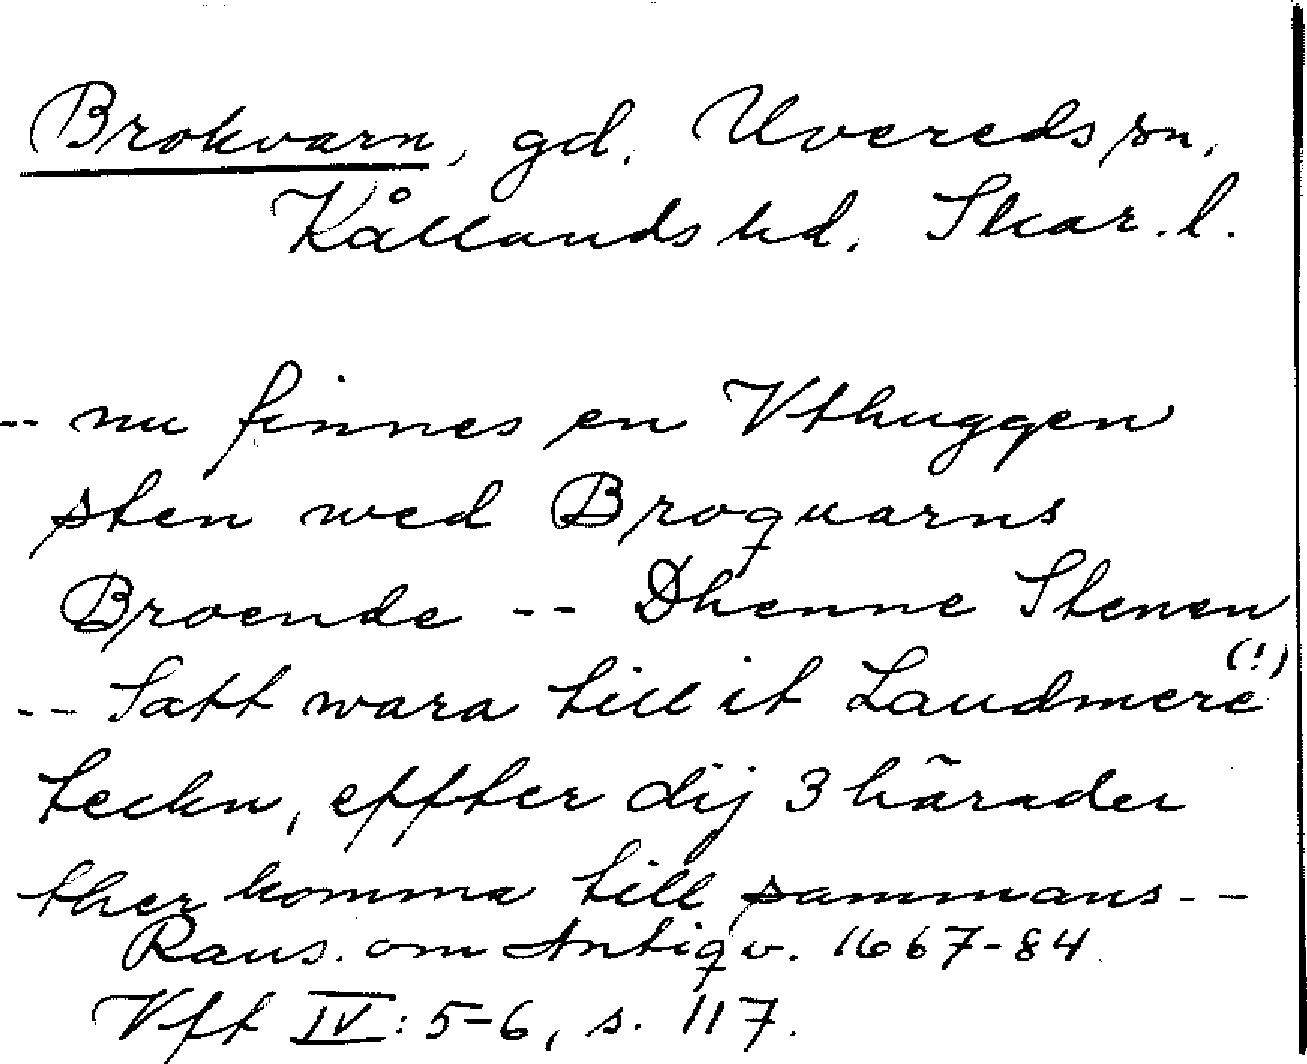 Brokvarn, gd. Uvereds sn,
Kållands hd. Skar. l.
-- nu finnes en Vthuggen
sten wed Broquarns
Broende -- Dhenne Stenen
-- Satt wara till it Landmere (!)
teckn, effter dij 3 härader
ther komma till sammans --
Rans. om Antiqv. 1667-84.
Vft IV: 5-6, s. 117.